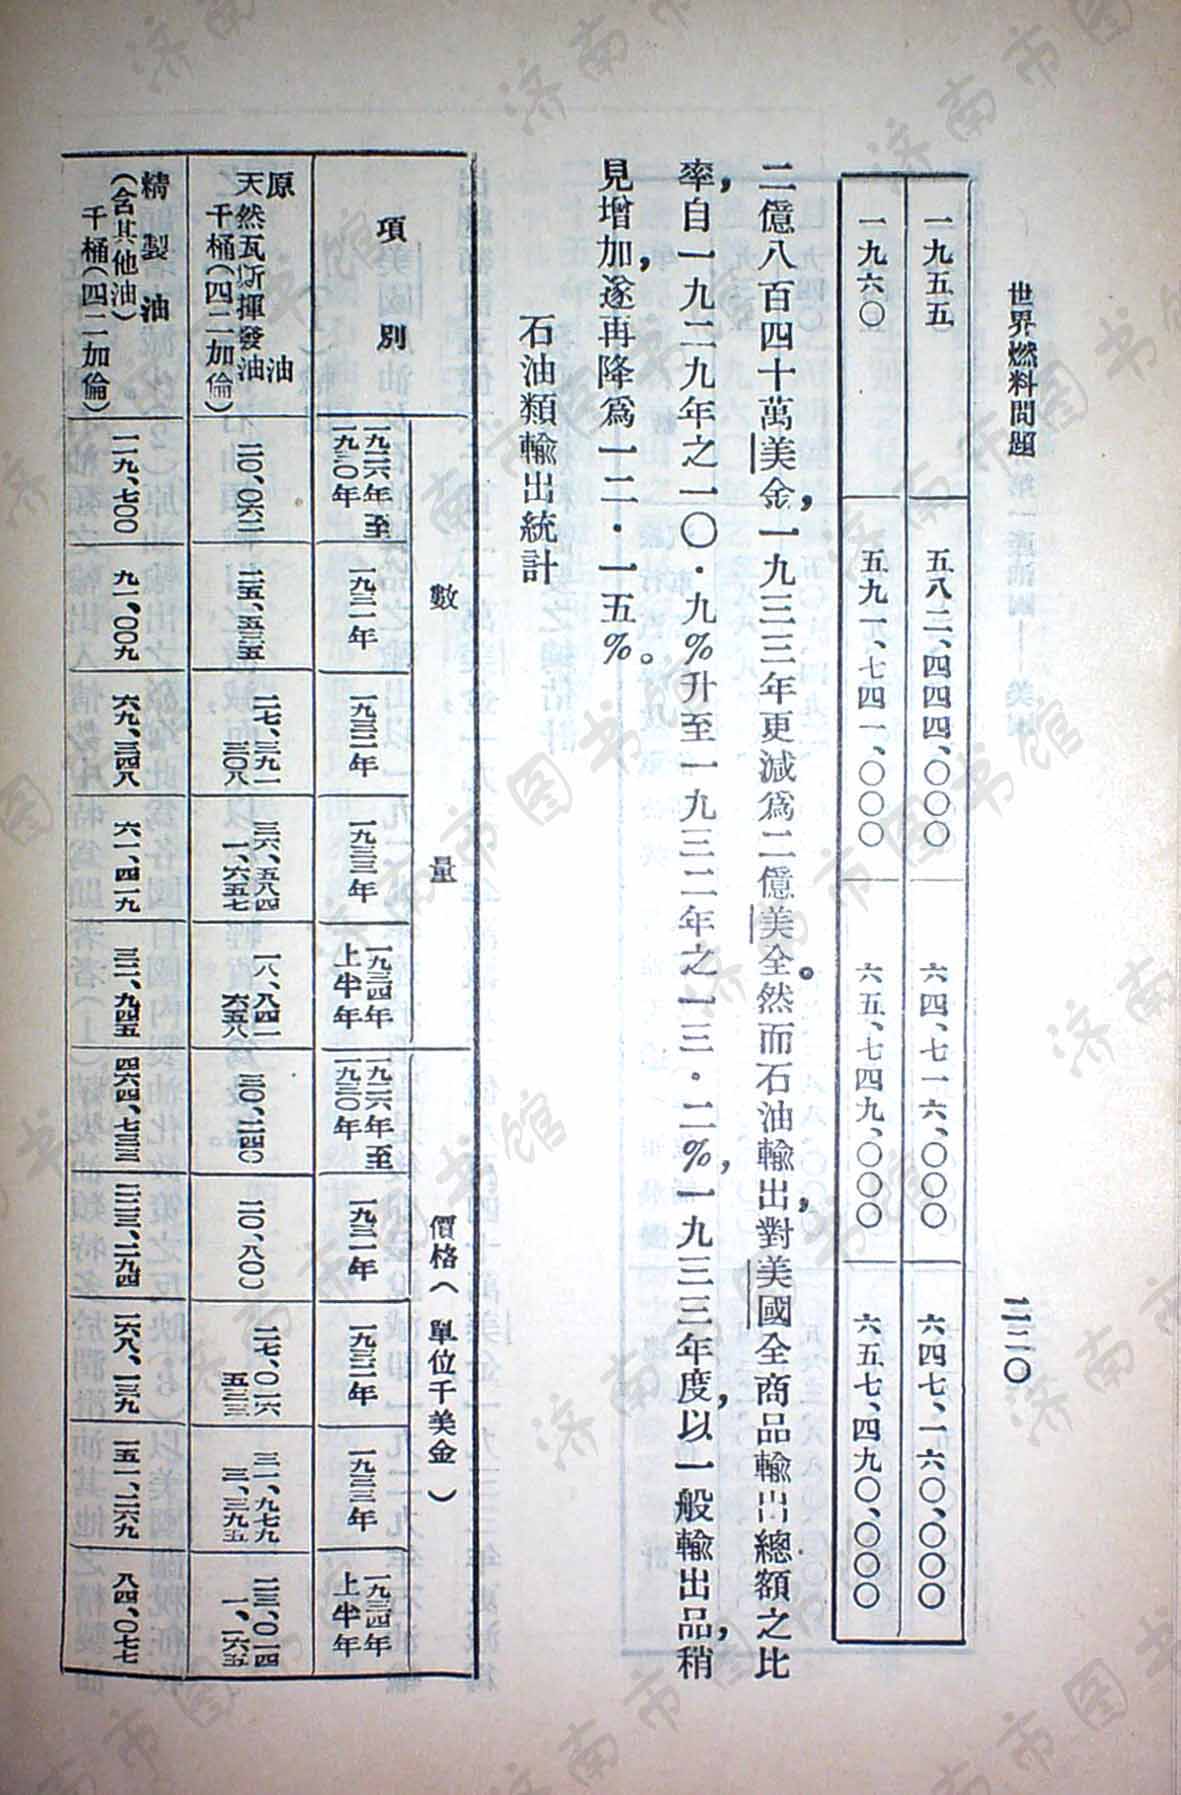 世界燃料問題
一二〇
一九五五　五八二、四四四、〇〇〇　六四、七一六、〇〇〇　六四七、一六〇、〇〇〇
一九六〇　五九一、七四一、〇〇〇　六五、七四九、〇〇〇　六五七、四九〇、〇〇〇
二億八百四十萬美金，一九三三年更減爲二億美全。然而石油輸出，對美國全商品輸出總額之比
率，自一九二九年之一〇·九％升至一九三二年之一三·二％，一九三三年度，以一般輸出品，稍
見增加，遂再降爲一二·一五％。
石油類輸出統計
數量　價格（單位千美金）
項別　一九二六年至一九三〇年　一九三一年　一九三二年　一九三三年　一九三四年上半年　一九二六年至一九三〇年　一九三一年　一九三二年　一九三三年　一九三四年上半年
原油　二七、三九一　三六、五八四　一八、八四一　二七、〇一六　三一、九七九　二三、〇一四
天然瓦斯揮發油　二〇、〇六二　二五、五三五　三〇、二四〇　二〇、八〇一
千桶（四二加倫）　三〇八　一、六五七　六五八　五三三　三、三九五　一、一六五
精製油
（含其他油）　一一九、七〇〇　九一、〇〇九　六九、三四八　六一、四一九　三二、九四五　四六四、七三三　二二三、二九四　一六八、一三九　一五一、二六九　八四、〇七七
千桶（四二加倫）